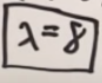 λ = 8